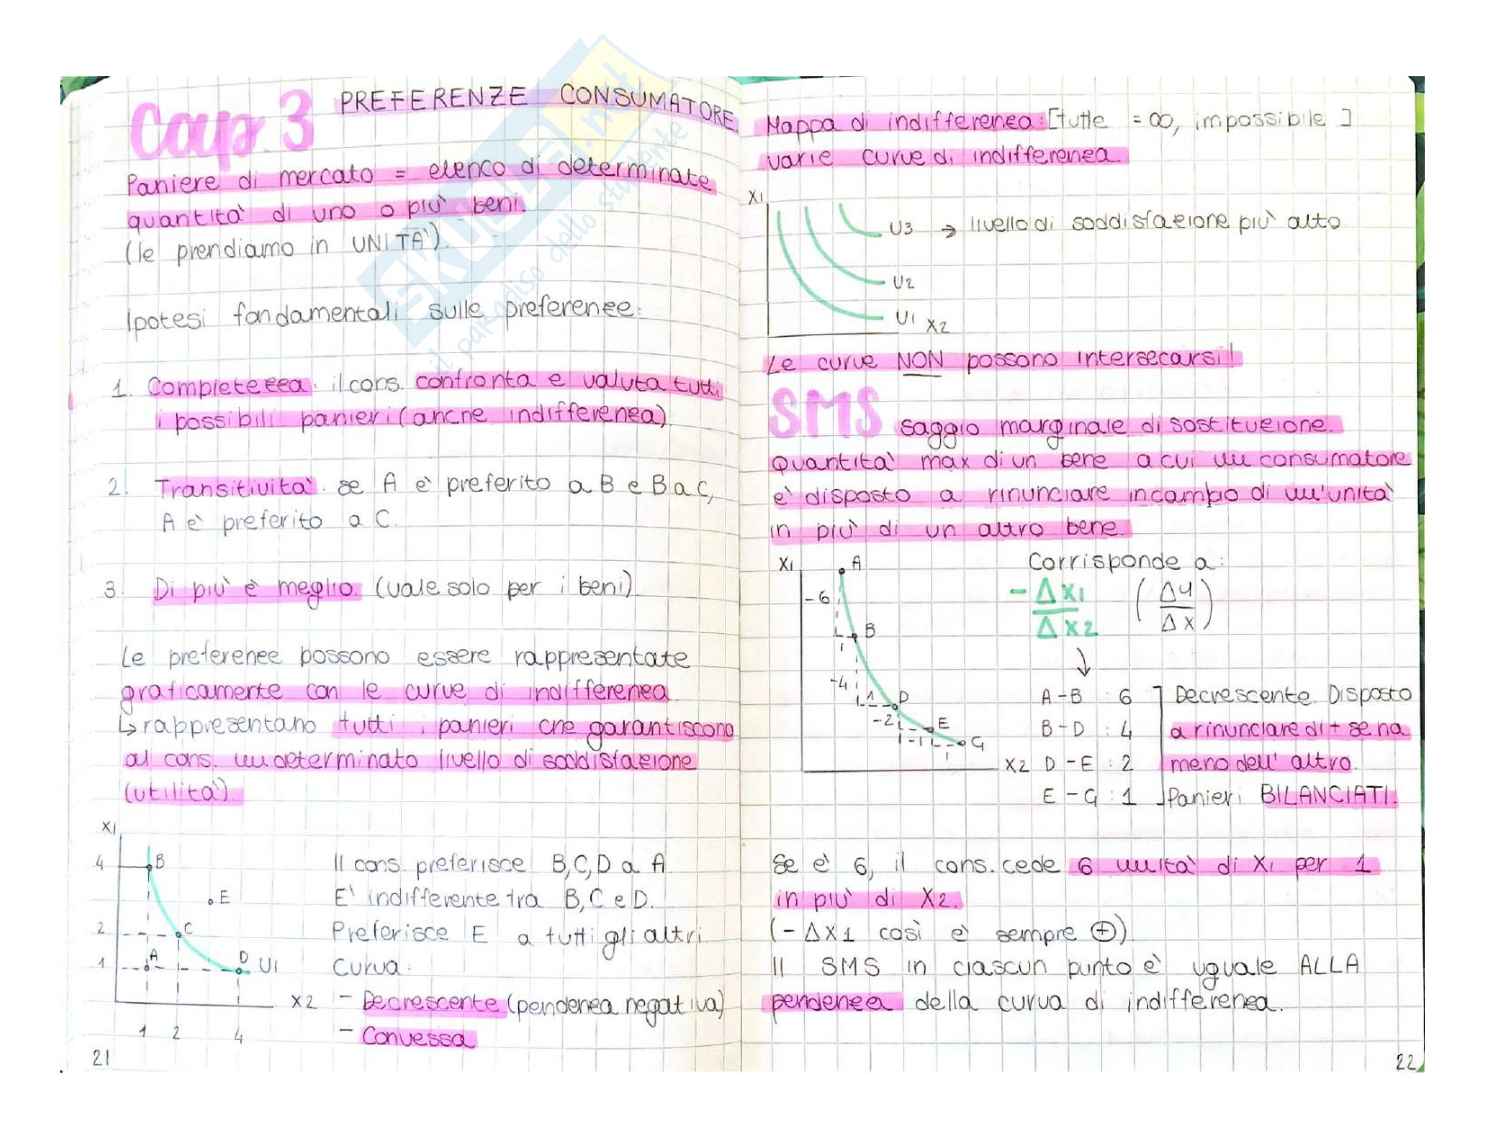 Cap. 3 PREFERENZE CONSUMATORE
Paniere di mercato = elenco di determinate
quantità di uno o più beni.
(le prendiamo in UNITÀ).
Ipotesi fondamentali sulle preferenze:
1. Completezza: il cons. confronta e valuta tutti
i possibili panieri (anche indifferenza)
2. Transitività. se A è preferito a B e B a C,
A è preferito a C.
3. Di più è meglio. (vale solo per i beni)
Le preferenze possono essere rappresentate
graficamente con le curve di indifferenza
↳ rappresentano tutti i panieri che garantiscono
al cons. un determinato livello di soddisfazione
(utilità)
X1
4 B
E
2 C
1 A D U1
X2
1 2 4
Il cons. preferisce B,C,D a A
E' indifferente tra B, C e D.
Preferisce E a tutti gli altri
Curva:
- Decrescente (pendenza negativa)
- Convessa
21
Mappa di indifferenza: [tutte = ∞, impossibile]
varie curve di indifferenza.
X1
U3 → livello di soddisfazione più alto
U2
U1 X2
Le curve NON possono intersecarsi!
SMS saggio marginale di sostituzione.
Quantità max di un bene a cui un consumatore
è disposto a rinunciare in cambio di un'unità
in più di un altro bene.
X1 A
-6
B
1
-4
1 D
-2 E
1 -1 G
1
X2
Corrisponde a:
- Δx1 / Δx2 (Δy / Δx)
↓
A-B : 6
B-D : 4
D-E : 2
E-G : 1
Decrescente. Disposto
a rinunciare di + se ha
meno dell' altro.
Panieri BILANCIATI.
Se è 6, il cons. cede 6 unità di X1 per 1
in più di X2.
(-ΔX1 così è sempre ⊕)
Il SMS in ciascun punto è uguale ALLA
pendenza della curva di indifferenza.
22
skuola.net
il paradiso dello studente